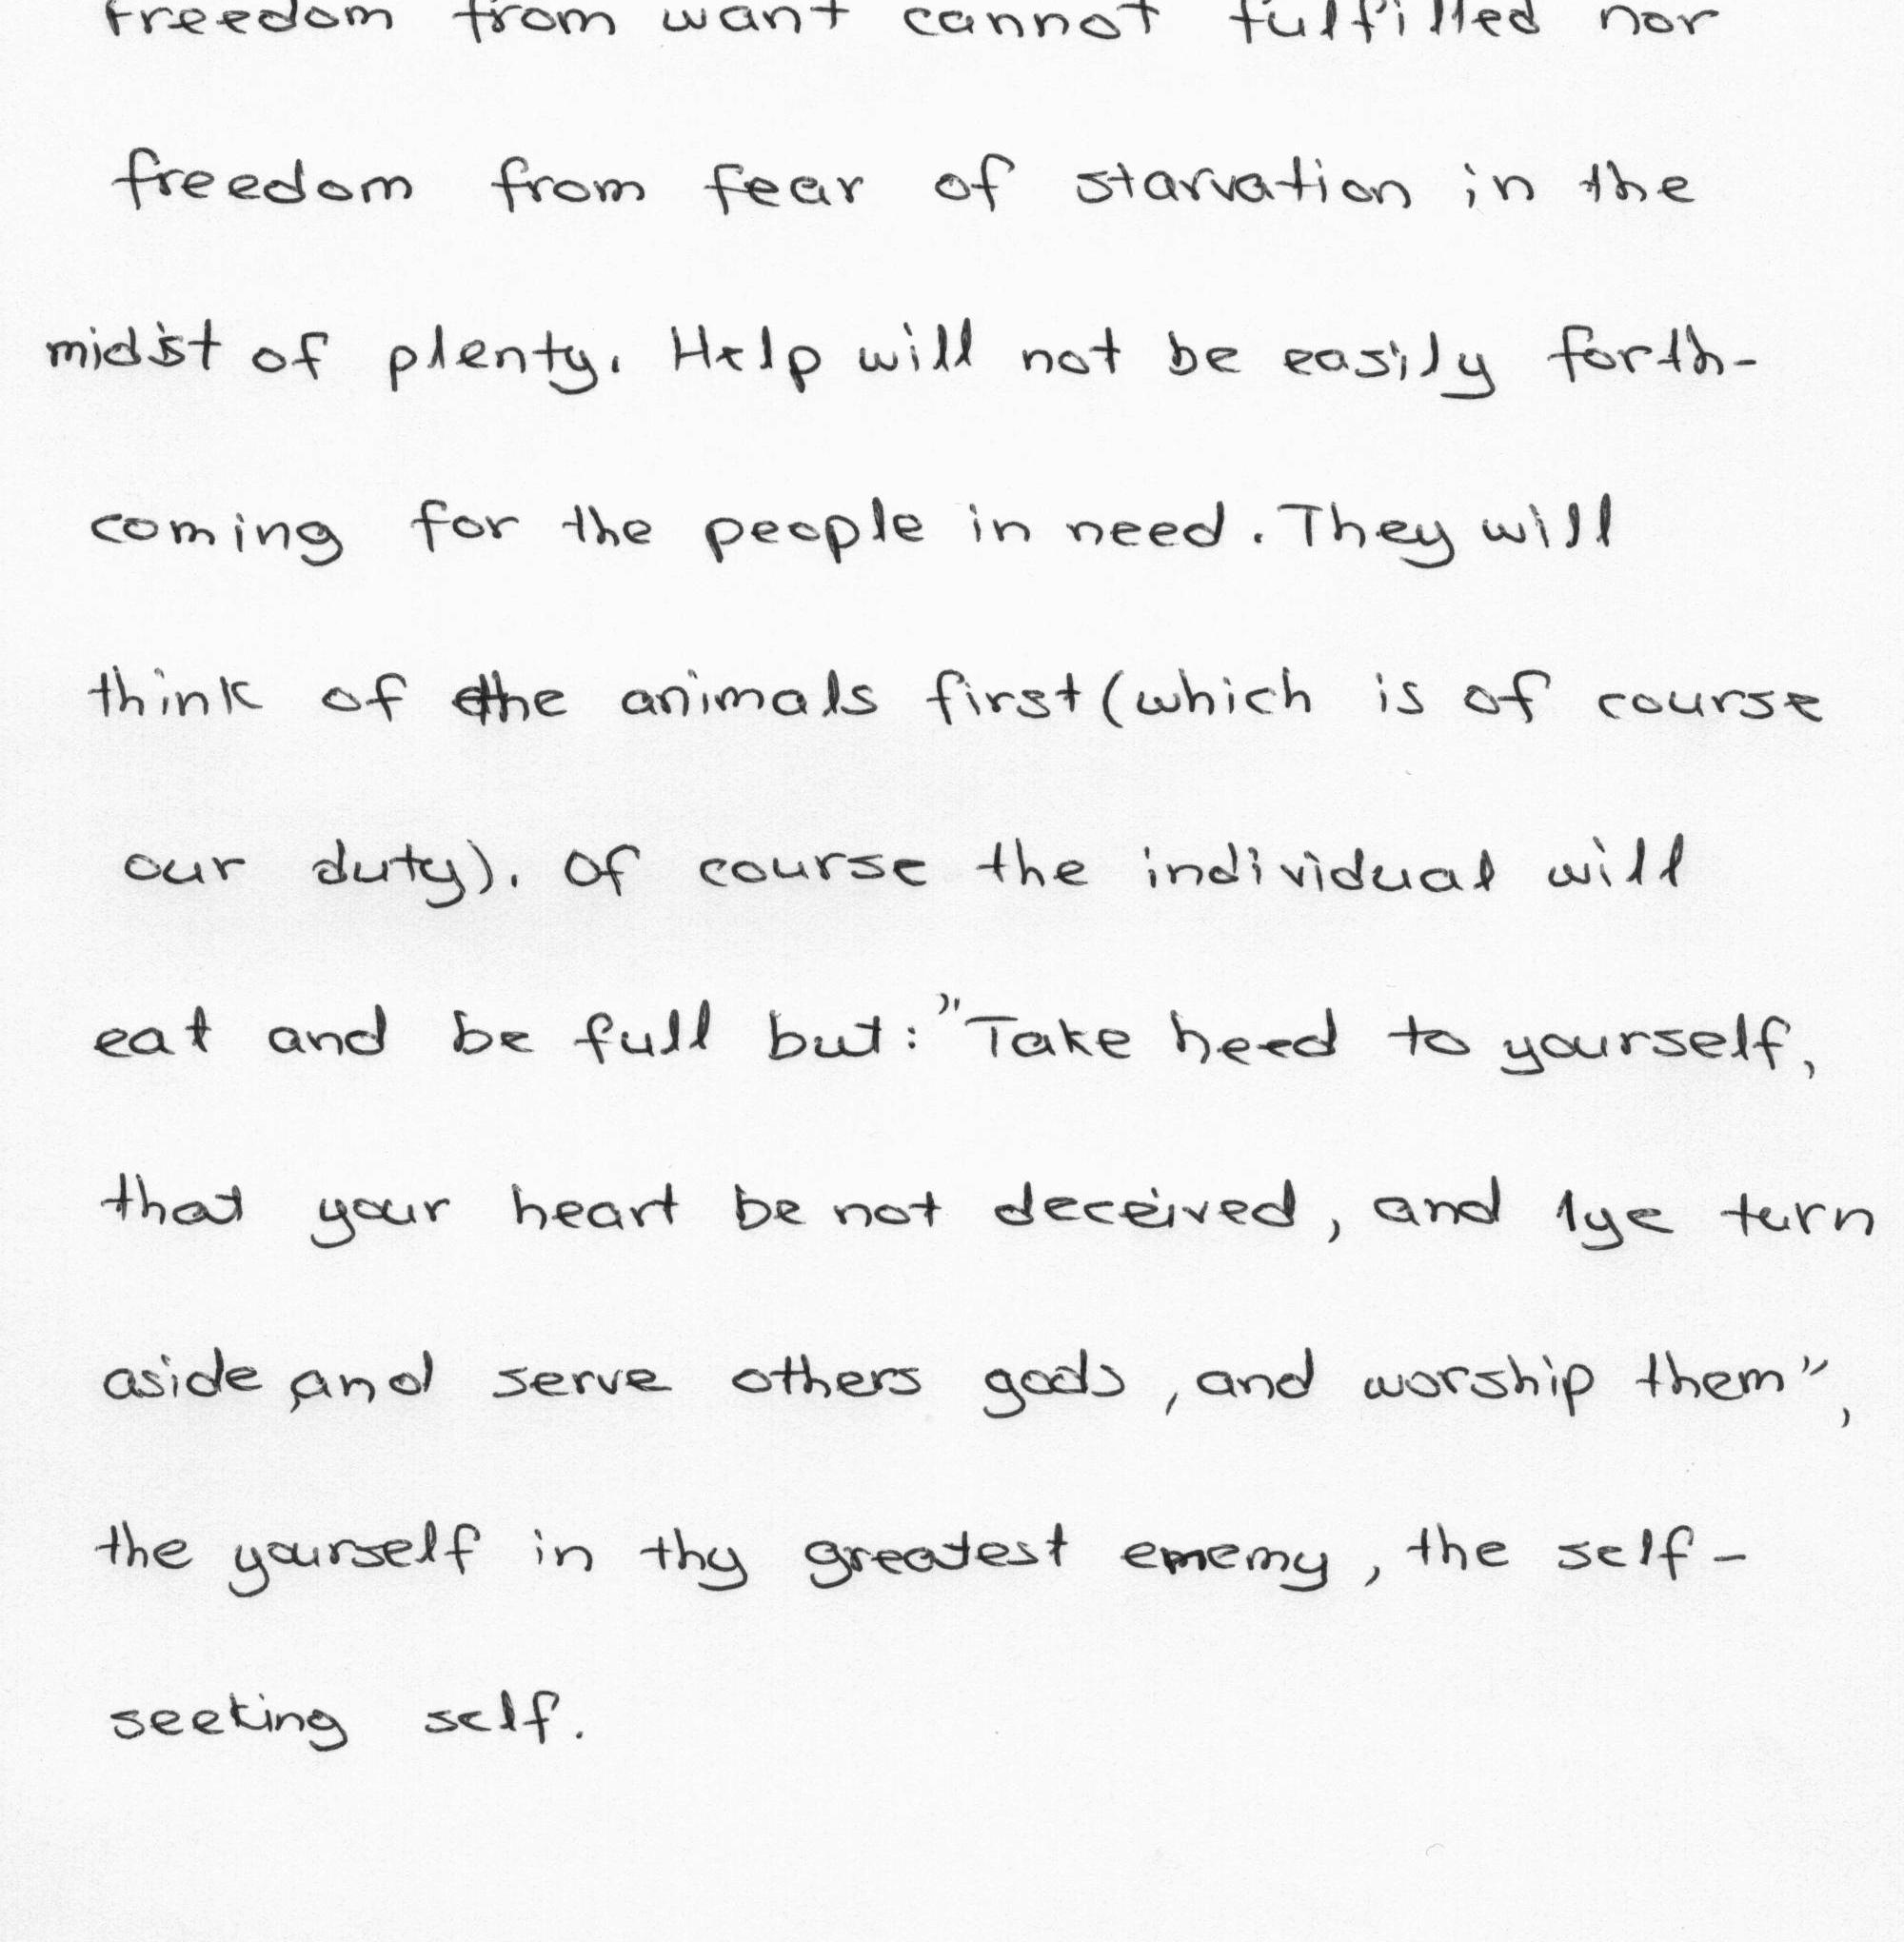 freedom from want cannot fulfilled nor
freedom from fear of starvation in the
midist of plenty. Help will not be easily forth-
coming for the people in need. They will
think of the animals first (which is of course
our duty). Of course the individual will
eat and be full but: "Take heed to yourself,
that your heart be not deceived, and 1ye turn
aside, and serve others gods, and worship them",
the yourself in thy greatest ememy, the self-
seeking self.